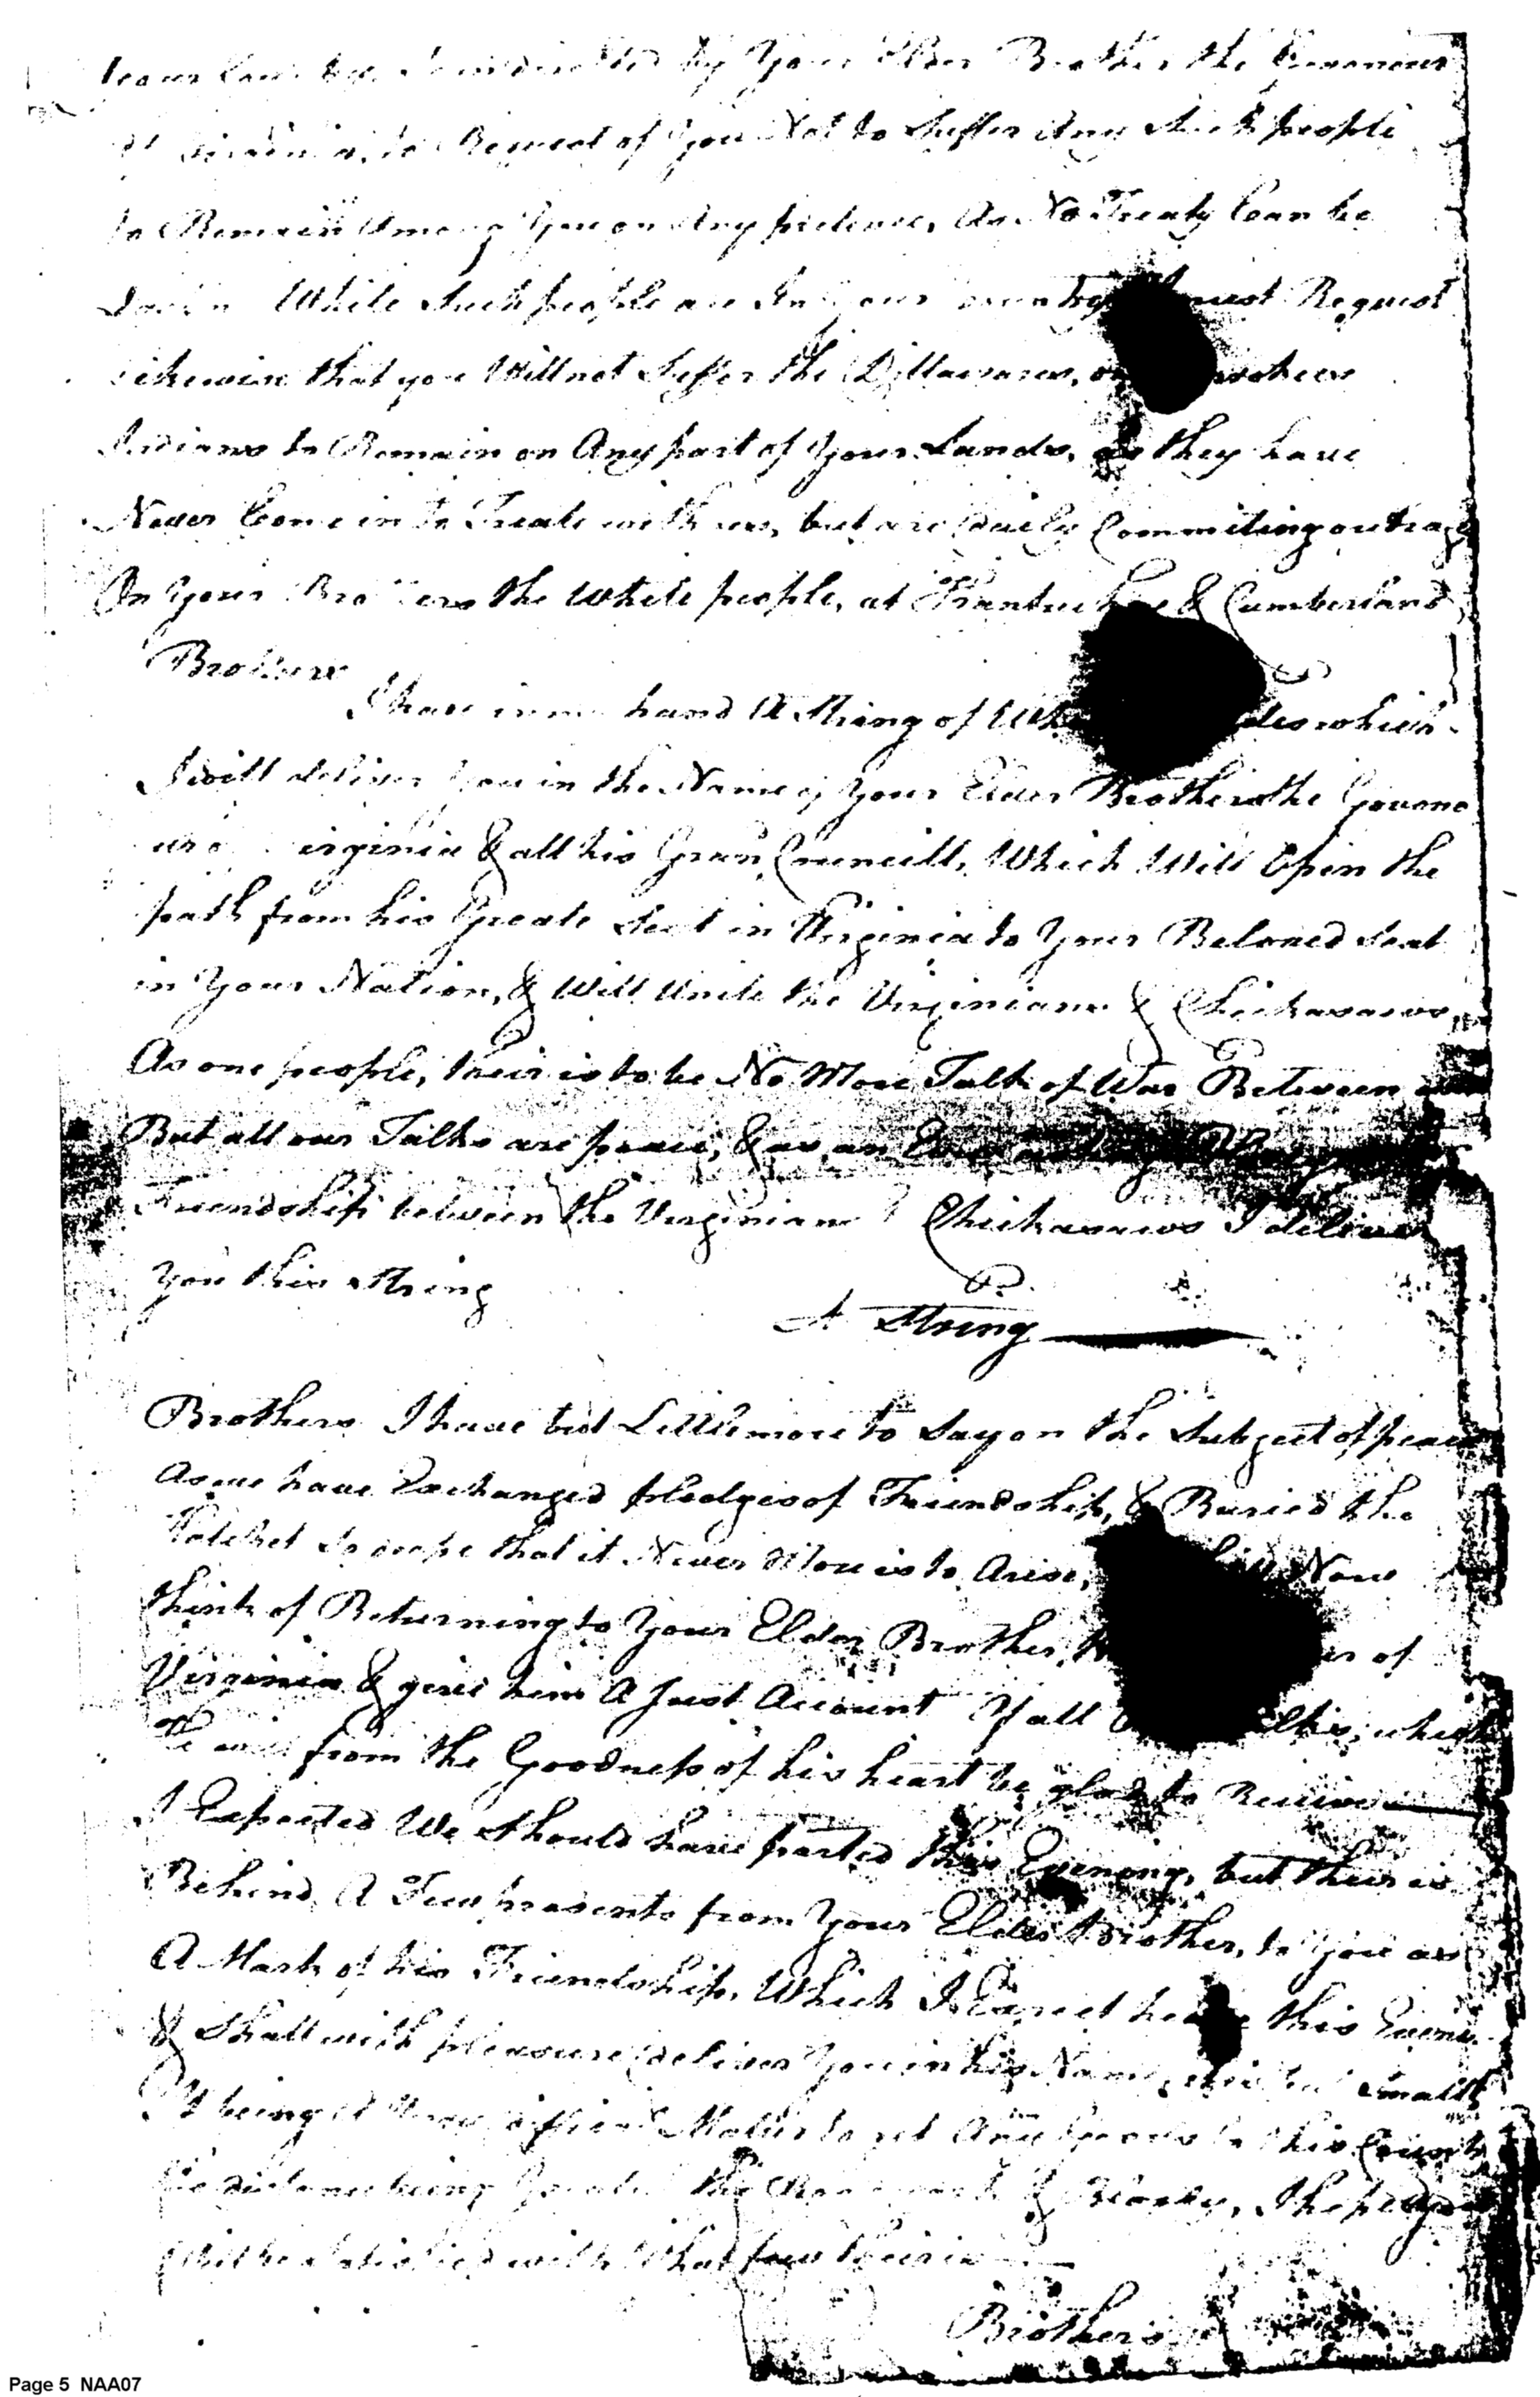 by Your Elder Brother the Governour
to Request of You Not to Suffer Any Such people
to Remain Among You on Any pretence, As No Treaty Can be
While Such people are In Your Country must Request
that you Will not Suffer the Dillawares, or
Indians to Remain on Any part of Your Lands, as they have
Never Come in to Treate with us, but are daily Commiting outrages
On Your Brothers the White people, at Kantuckee & Cumberland
Brothers
I have in my hand A String of which
I will deliver You in the Name of Your Elder Brother the Governo
Virginia & all his Councill, Which Will Open the
path from his Greate Seat in Virginia to Your Beloved Seat
in Your Nation, & Will Unite the Virginians & Chickasaws,
As one people, their is to be No More Talk of War Between
But all our Talks are peace, & as an
Friendship between the Virginians Chickasaws I deliver
You this String
A String
Brothers I have but Little more to Say on the Subject of peace
As we have Exchanged pledges of Friendship, & Buried the
Hatchet So deepe that it Never More is to Arise, Now
think of Returning to Your Elder Brother, of
Virginia & give him A Just Account of all which
from the Goodness of his heart be glad to Receive
I Expected We Should have parted this Evening, but their is
Behind A Few presents from Your Elder Brother, to You as
A Mark of his Friendship, Which I Expect this
& Shall with pleasure deliver You in his Name, Small
It being A Matter to get Any to this
distance being the & Rocky, I hope
Will be Satisfied with What few their is
Brothers
Page 5 NAA07